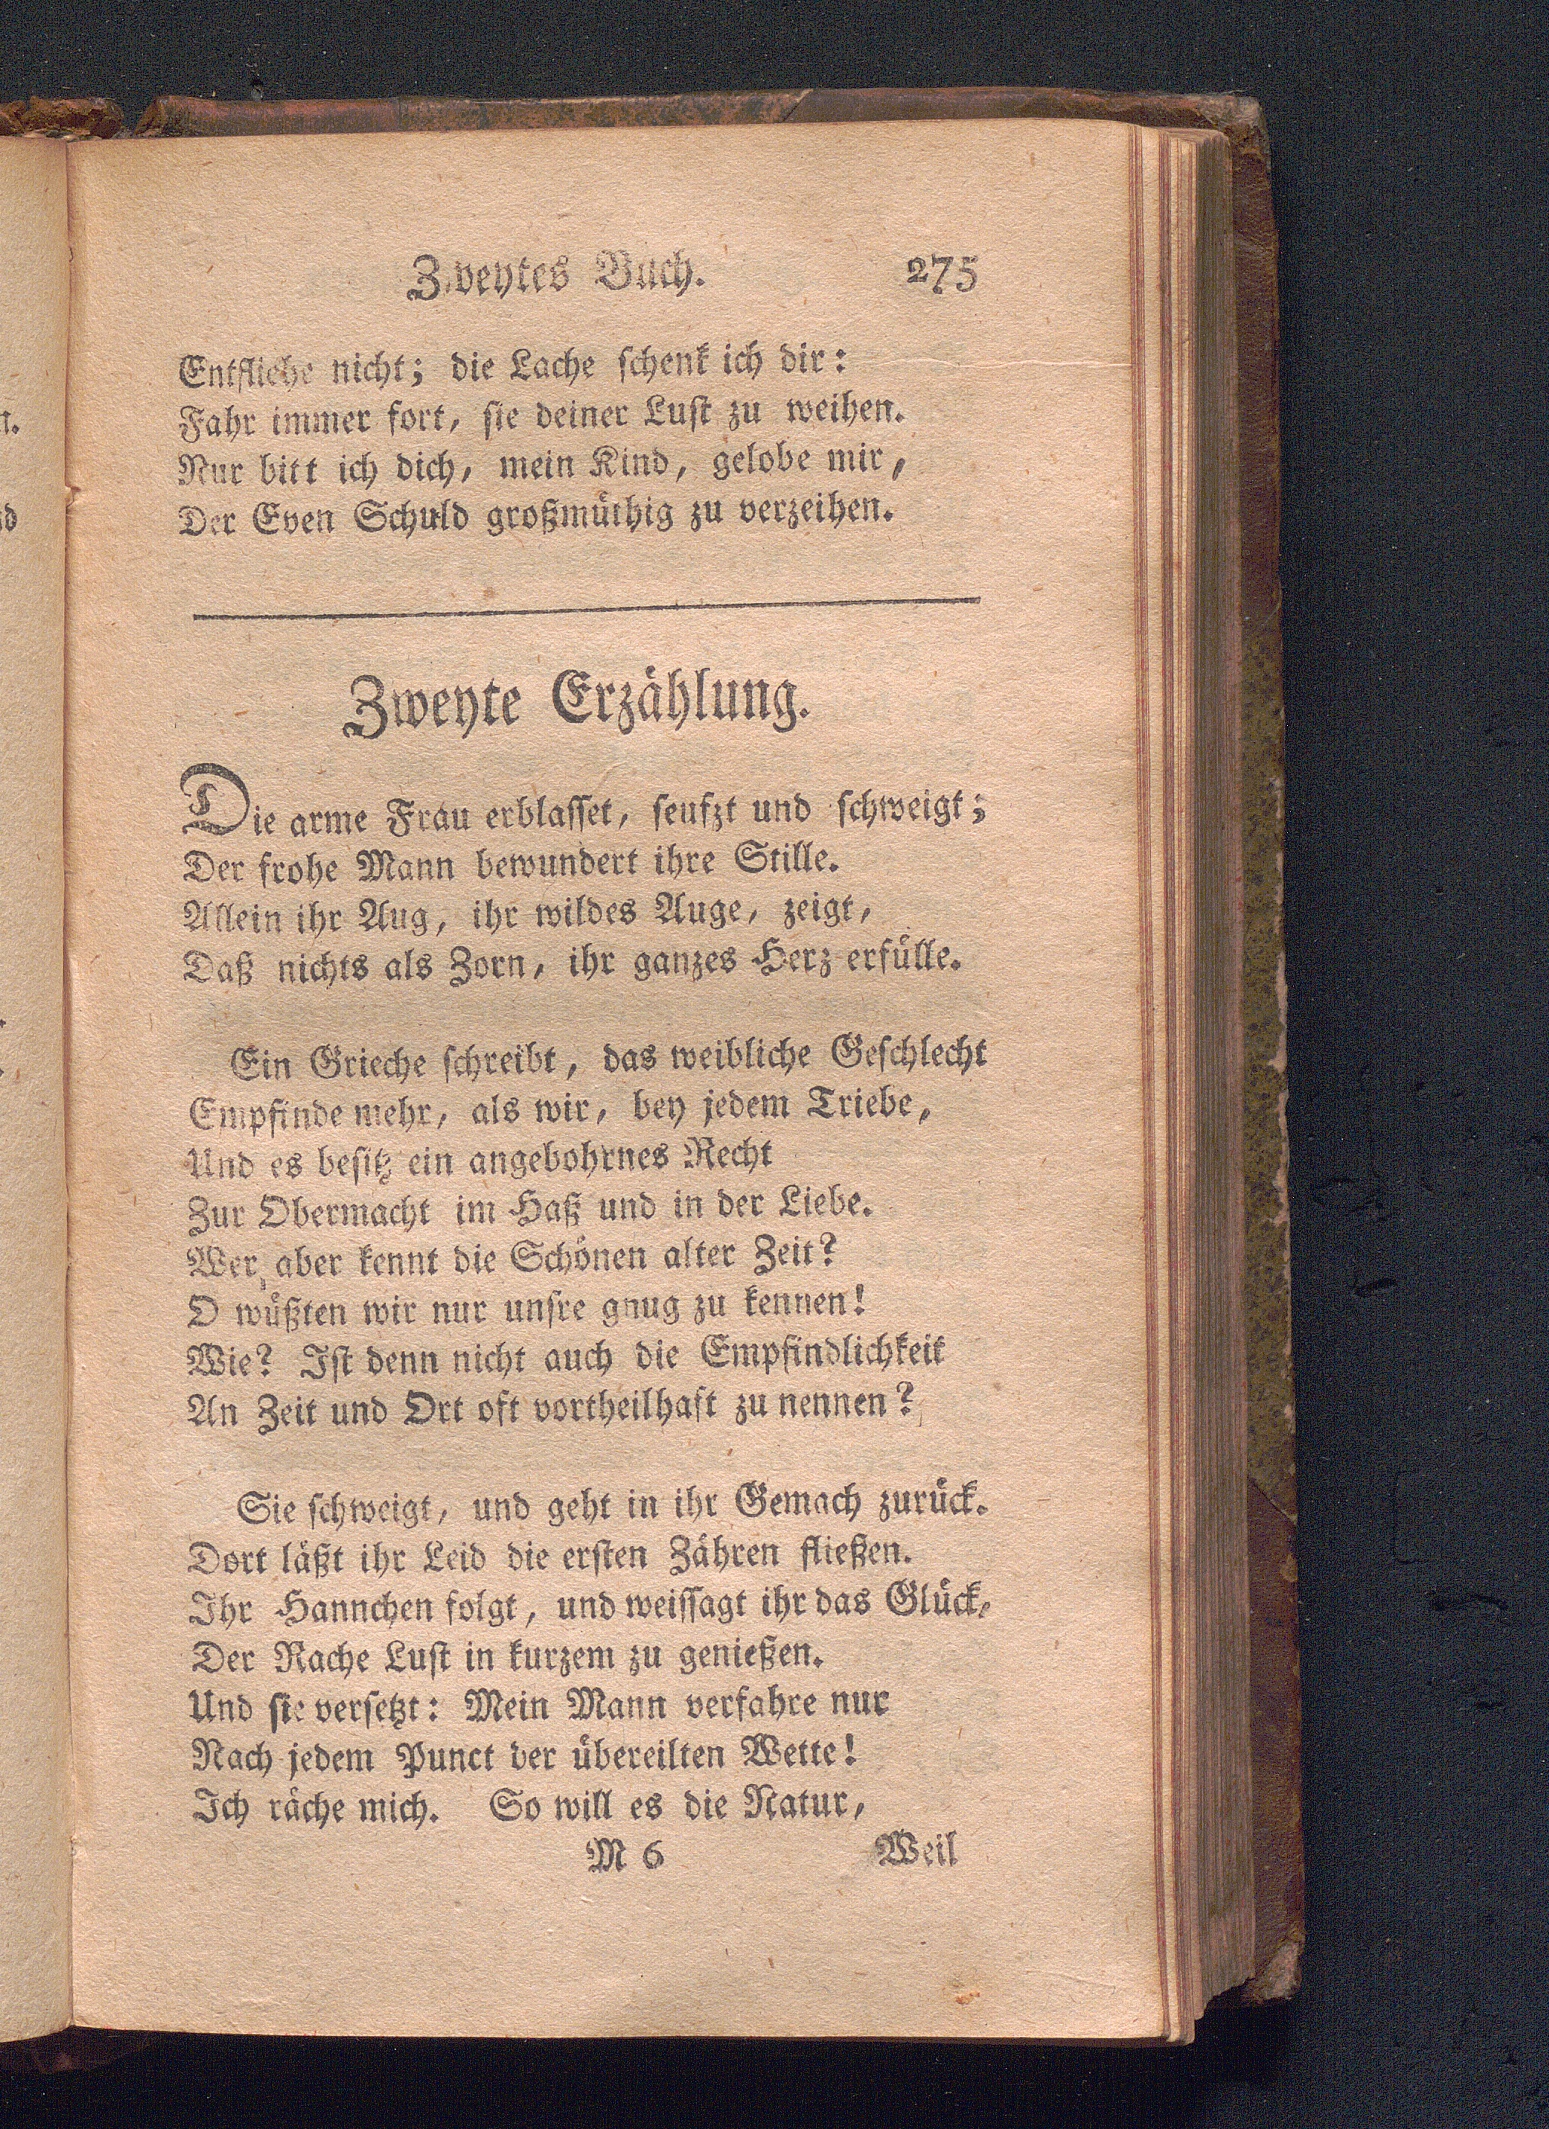 Zweytes Buch. 275
Entfliehe nicht; die Lache schenk ich dir:
Fahr immer fort, sie deiner Lust zu weihen.
Nur bitt ich dich, mein Kind, gelobe mir,
Der Even Schuld großmüthig zu verzeihen.
Zweyte Erzählung.
Die arme Frau erblasset, seufzt und schweigt;
Der frohe Mann bewundert ihre Stille.
Allein ihr Aug, ihr wildes Auge, zeigt,
Daß nichts als Zorn, ihr ganzes Herz erfülle.
Ein Grieche schreibt, das weibliche Geschlecht
Empfinde mehr, als wir, bey jedem Triebe,
Und es besitz ein angebohrnes Recht
Zur Obermacht im Haß und in der Liebe.
Wer aber kennt die Schönen alter Zeit?
O wüßten wir nur unsre gnug zu kennen!
Wie? Ist denn nicht auch die Empfindlichkeit
An Zeit und Ort oft vortheilhaft zu nennen?
Sie schweigt, und geht in ihr Gemach zurück.
Dort läßt ihr Leid die ersten Zähren fließen.
Ihr Hannchen folgt, und weissagt ihr das Glück,
Der Rache Lust in kurzem zu genießen.
Und sie versetzt: Mein Mann verfahre nur
Nach jedem Punct der übereilten Wette!
Ich räche mich. So will es die Natur,
M 6 Weil